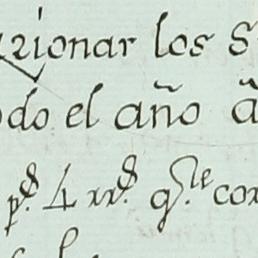 rzionar los S
odo el año á
p.s 4 rr.s q.te cor